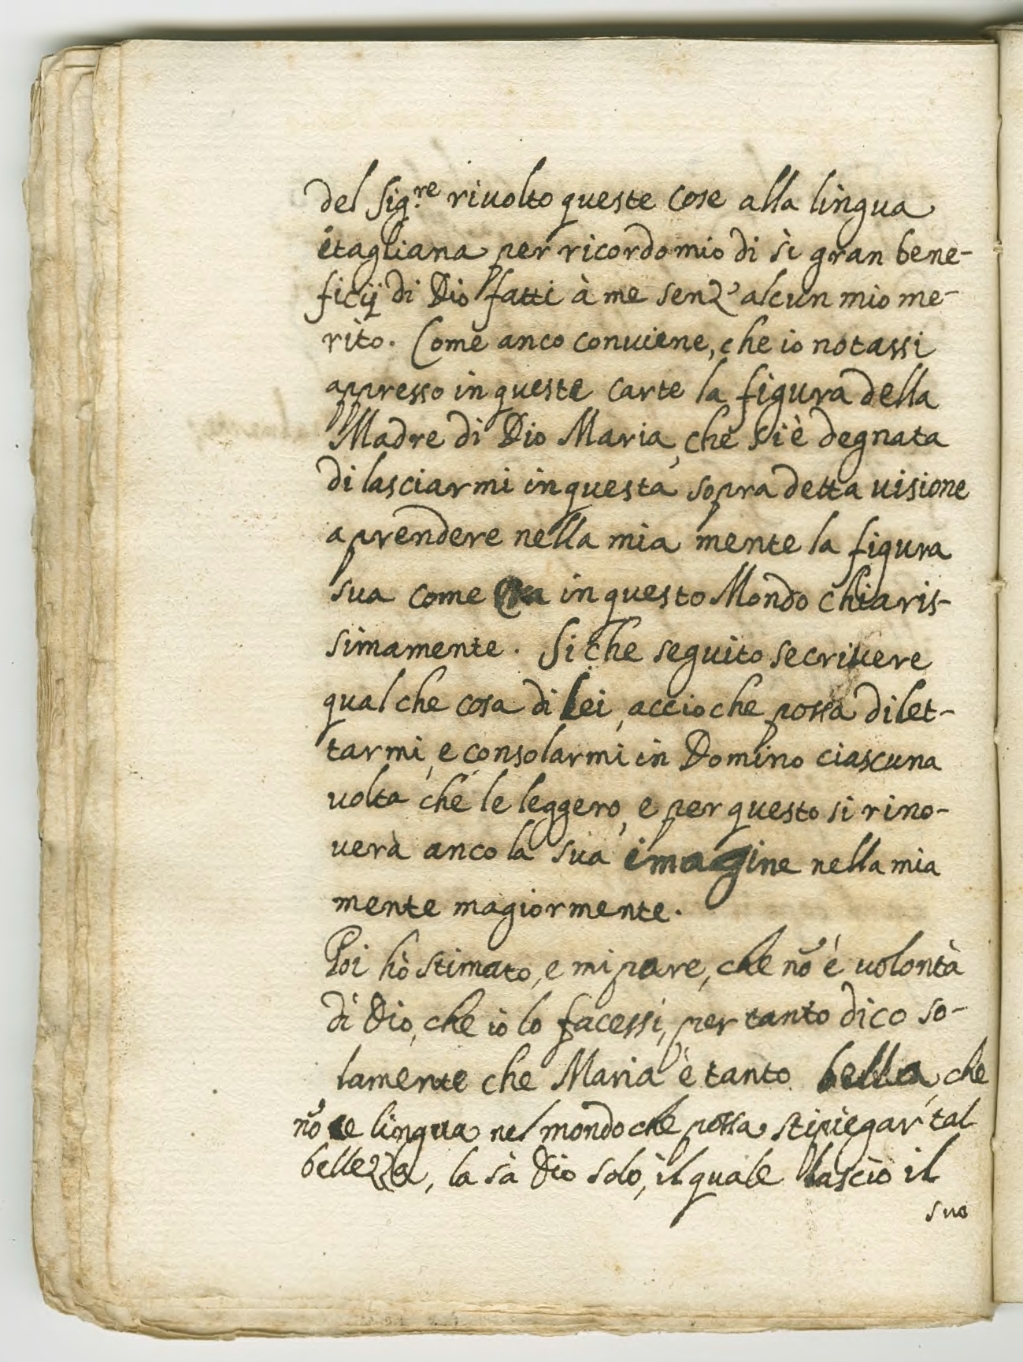 del Sig.re riuolto queste cose alla lingua
itagliana per ricordo mio di sì gran bene-
ficij di Dio fatti à me senz' alcun mio me-
rito. Come anco conuiene, che io notassi
appresso in queste carte la figura della
Madre di Dio Maria, che si è degnata
di lasciarmi in questa sopra detta uisione
aprendere nella mia mente la figura
sua come in questo Mondo chiaris-
simamente. Si che seguito secriuere
qual che cosa di lei, accio che possa dilet-
tarmi, e consolarmi in Domino ciascuna
uolta che le leggero, e per questo si rino-
uerà anco la sua imagine nella mia
mente magiormente.
Poi hò stimato, e mi pare, che nõ é uolontà
di Dio, che io lo facessi, per tanto dico so-
lamente che Maria è tanto bella, che
nõ ce lingua nel mondo che possa stipiegar tal
bellezza, la sà Dio solo, il quale lasciò il
suo